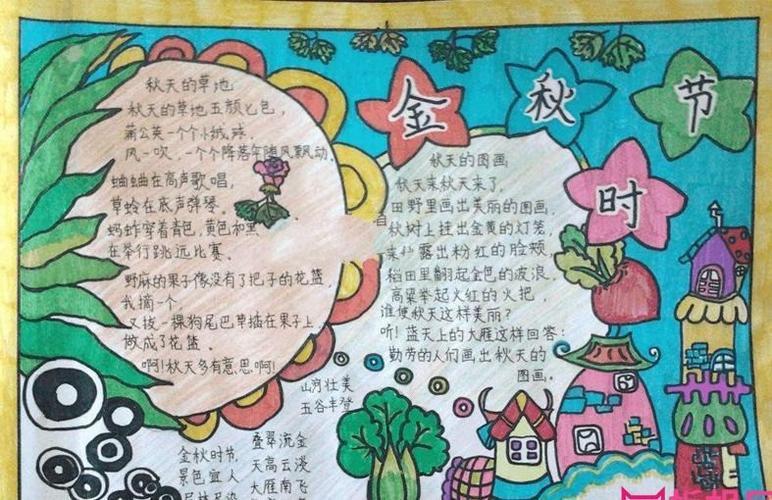 金秋时节
秋天的草地
秋天的草地五颜七色，
蒲公英一个个小绒球，
风一吹，一个个降落伞随风飘动。
蛐蛐在高声歌唱，
草蛉在底声弹琴。
蚂蚱穿着青色，黄色和黑
在举行跳远比赛。
野麻的果子像没有了把子的花篮，
我摘一个，
又拔一棵狗尾巴草插在果子上，
做成了花篮。
啊！秋天多有意思啊！
秋天的图画
秋天来秋天来了，
田野里画出美丽的图画，
秋树上挂出金黄的灯笼，
露出粉红的脸颊，
稻田里翻起金色的波浪，
高粱举起火红的火把，
谁使秋天这样美丽？
听！蓝天上的大雁这样回答：
勤劳的人们画出秋天的
图画。
山河壮美
五谷丰登
金秋时节，
景色宜人
叠翠流金
天高云淡
大雁南飞